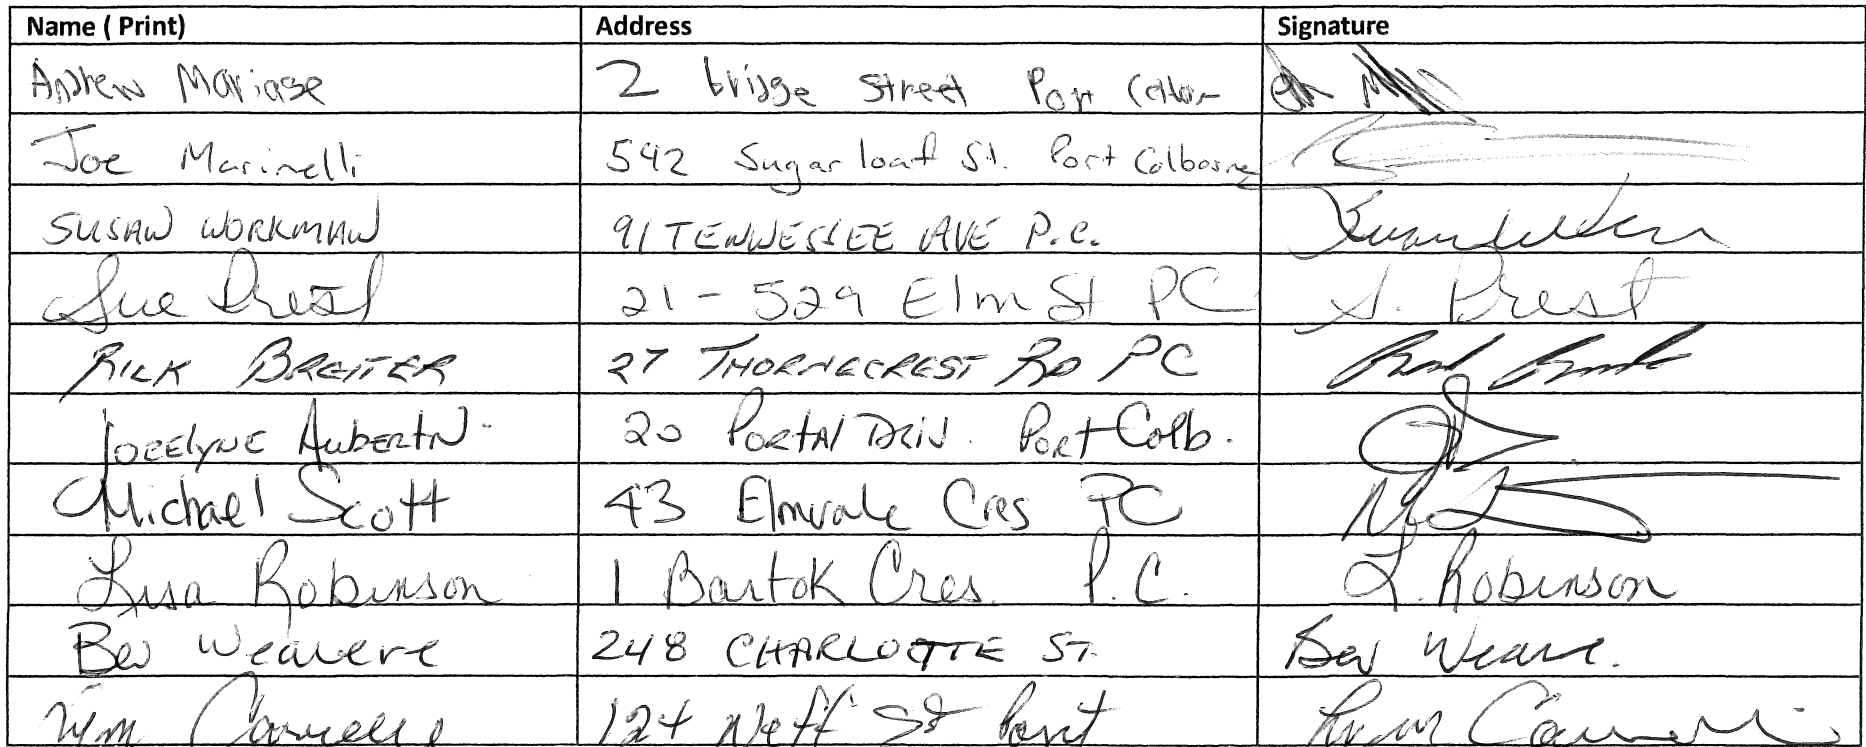 Name ( Print) Address Signature
Andrew Mariase 2 bridge Street Port
Joe Marinelli 542 Sugarloaf St. Port Colborne
SUSAN WORKMAN 91 TENNESSEE AVE P.C.
Sue Prest 21 - 529 Elm St PC S. Prest
RICK BREITER 27 THORNECREST RD PC
JOCELYNE AUBERTIN. 20 PORTAL DRIV. PORT Colb.
Michael Scott 43 Elmvale Cres PC
Lisa Robinson 1 Bartok Cres. P.C. L. Robinson
Bev Weavere 248 CHARLOTTE ST. Bev Weave.
124 Neff St Port